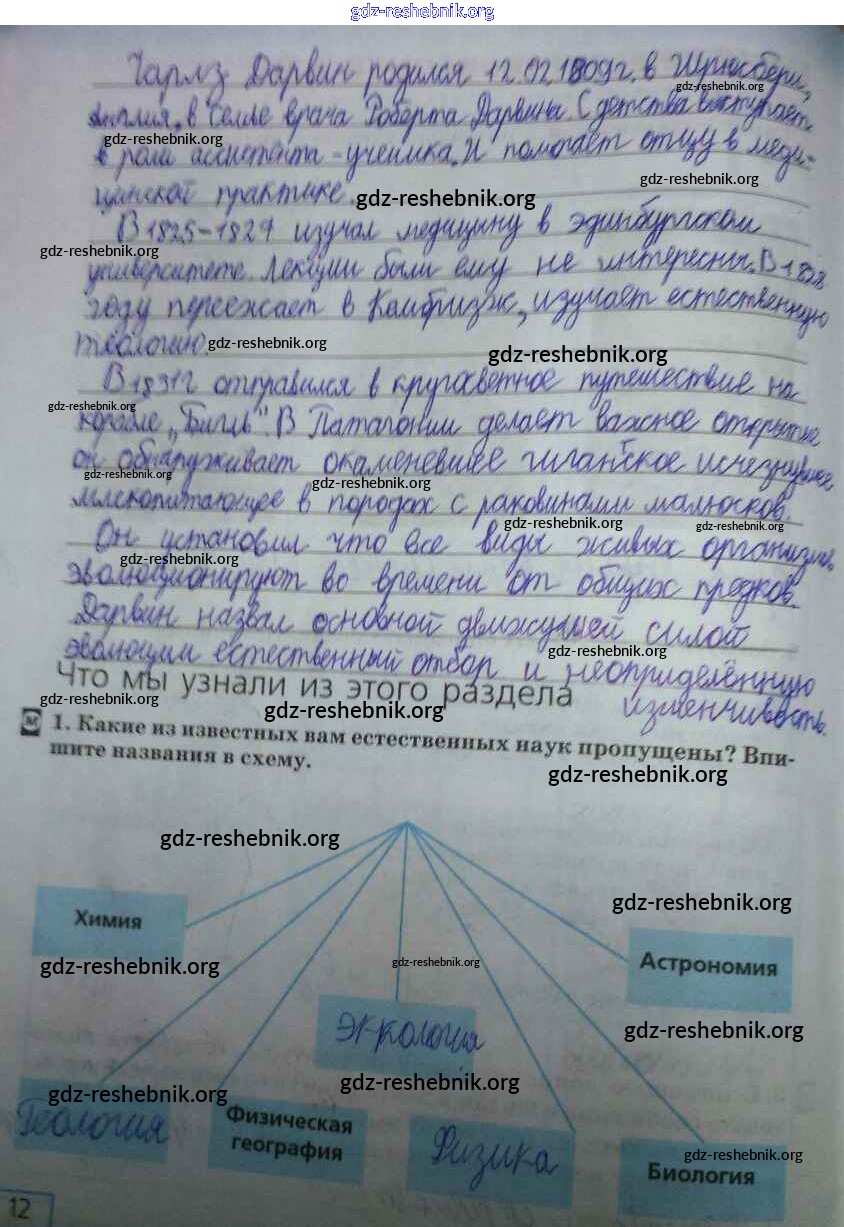 gdz-reshebnik.org
Чарлз Дарвин родился 12.02.1809г. в Шрюсбери,
Англия, в семье врача Роберта Дарвина. С детства выступает
в роли ассистента-ученика. И помогает отцу в меди-
цинской практике.
В 1825-1827 изучал медицину в эдинбургском
университете. Лекции были ему не интересны. В 1828
году переезжает в Кембридж, изучает естественную
теологию.
В 1831г отправился в кругосветное путешествие на
корабле „Бигль". В Патагонии делает важное открытие
он обнаруживает окаменевшее гигантское исчезнувшее
млекопитающее в породах с раковинами малюсков.
Он установил что все виды живых организмов
эволюционируют во времени от общих предков.
Дарвин назвал основной движущей силой
эволюции естественный отбор и неоприделённую
изменчивость.
Что мы узнали из этого раздела
1. Какие из известных вам естественных наук пропущены? Впи-
шите названия в схему.
Химия
Астрономия
Эккология
Геология
Физическая
география
Физика
Биология
12